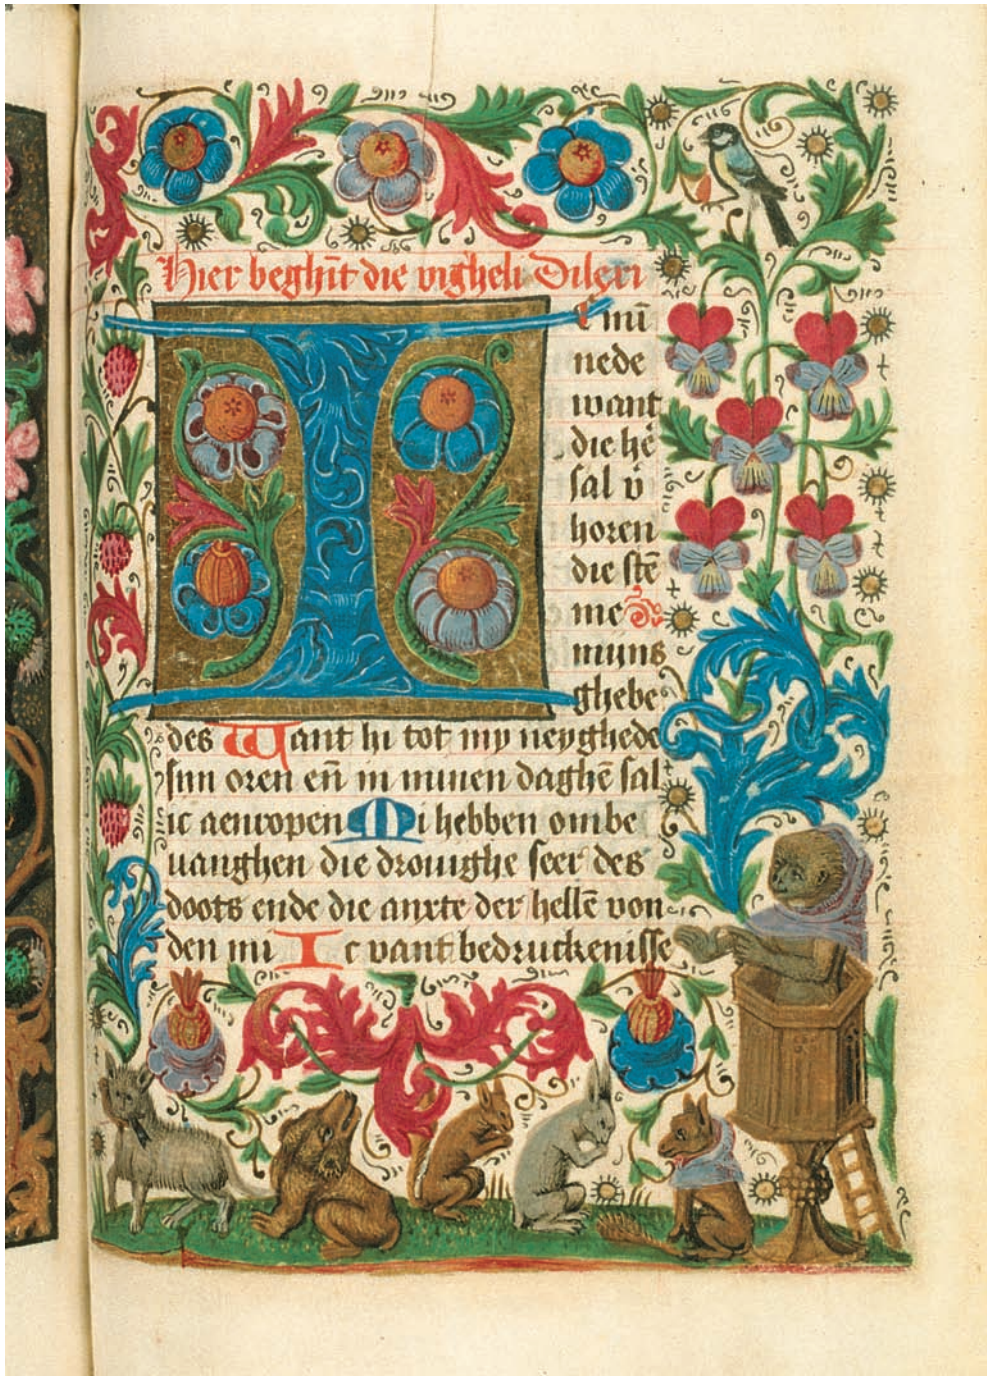 Hier beghīt die vigheli Dilexi
I c mī
nede
want
die hē
sal v̄
horen
die stē
me
mijns
ghebe
des Want hi tot my neyghede
sijn oren eñ in minen daghē sal
ic aenropen Mi hebben ombe
uanghen die drouighe seer des
doots ende die anxte der hellē von
den mi Ic vant bedruckenisse